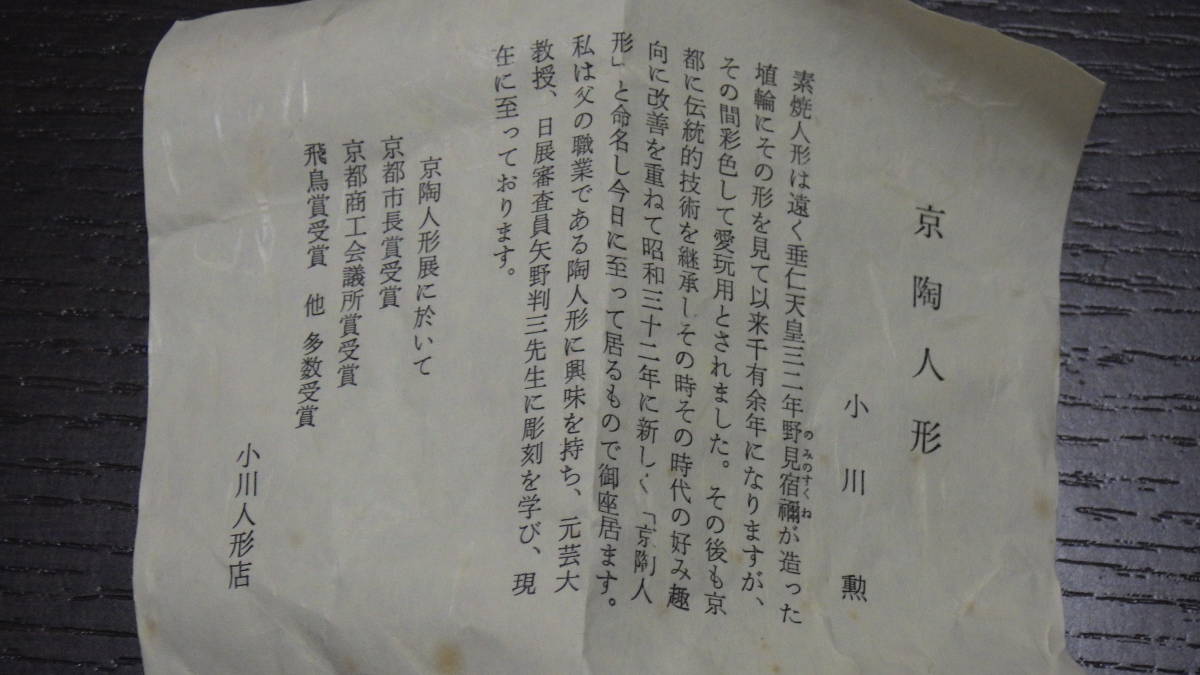 京陶人形
小川 勲
素焼人形は遠く垂仁天皇三二年野見宿禰が造った
のみのすくね
埴輪にその形を見て以来千有余年になりますが、
その間彩色して愛玩用とされました。その後も京
都に伝統的技術を継承しその時その時代の好み趣
向に改善を重ねて昭和三十二年に新しく「京陶人
形」と命名し今日に至って居るもので御座居ます。
私は父の職業である陶人形に興味を持ち、元芸大
教授、日展審査員矢野判三先生に彫刻を学び、現
在に至っております。
京陶人形展に於いて
京都市長賞受賞
京都商工会議所賞受賞
飛鳥賞受賞 他 多数受賞
小川人形店